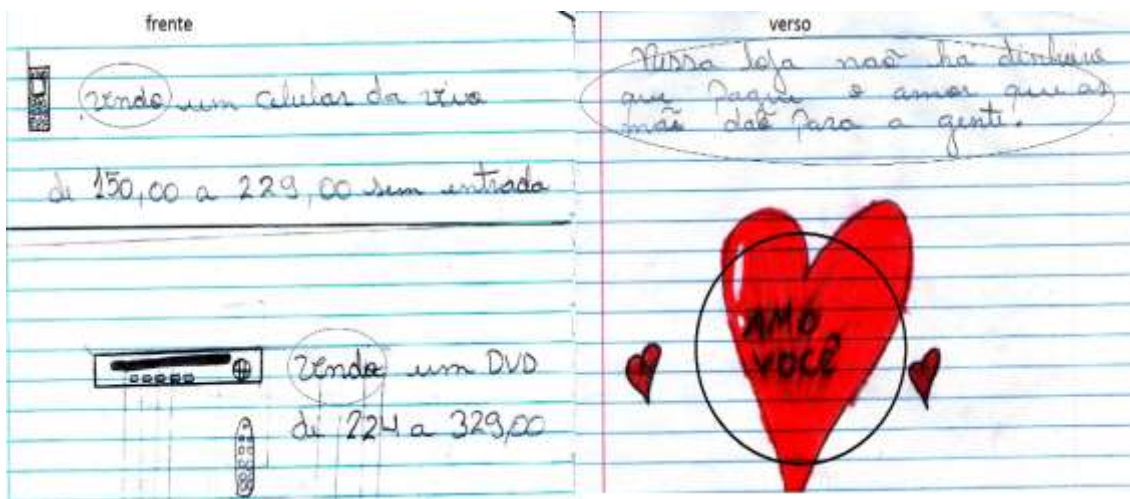 frente
vendo um celular da vivo
de 150,00 a 229,00 sem entrada
vendo um DVD
de 224 a 329,00
verso
Nessa loja naõ ha dinheiro
que pague o amor que as
mãe daõ para a gente.
AMO
VOCÊ